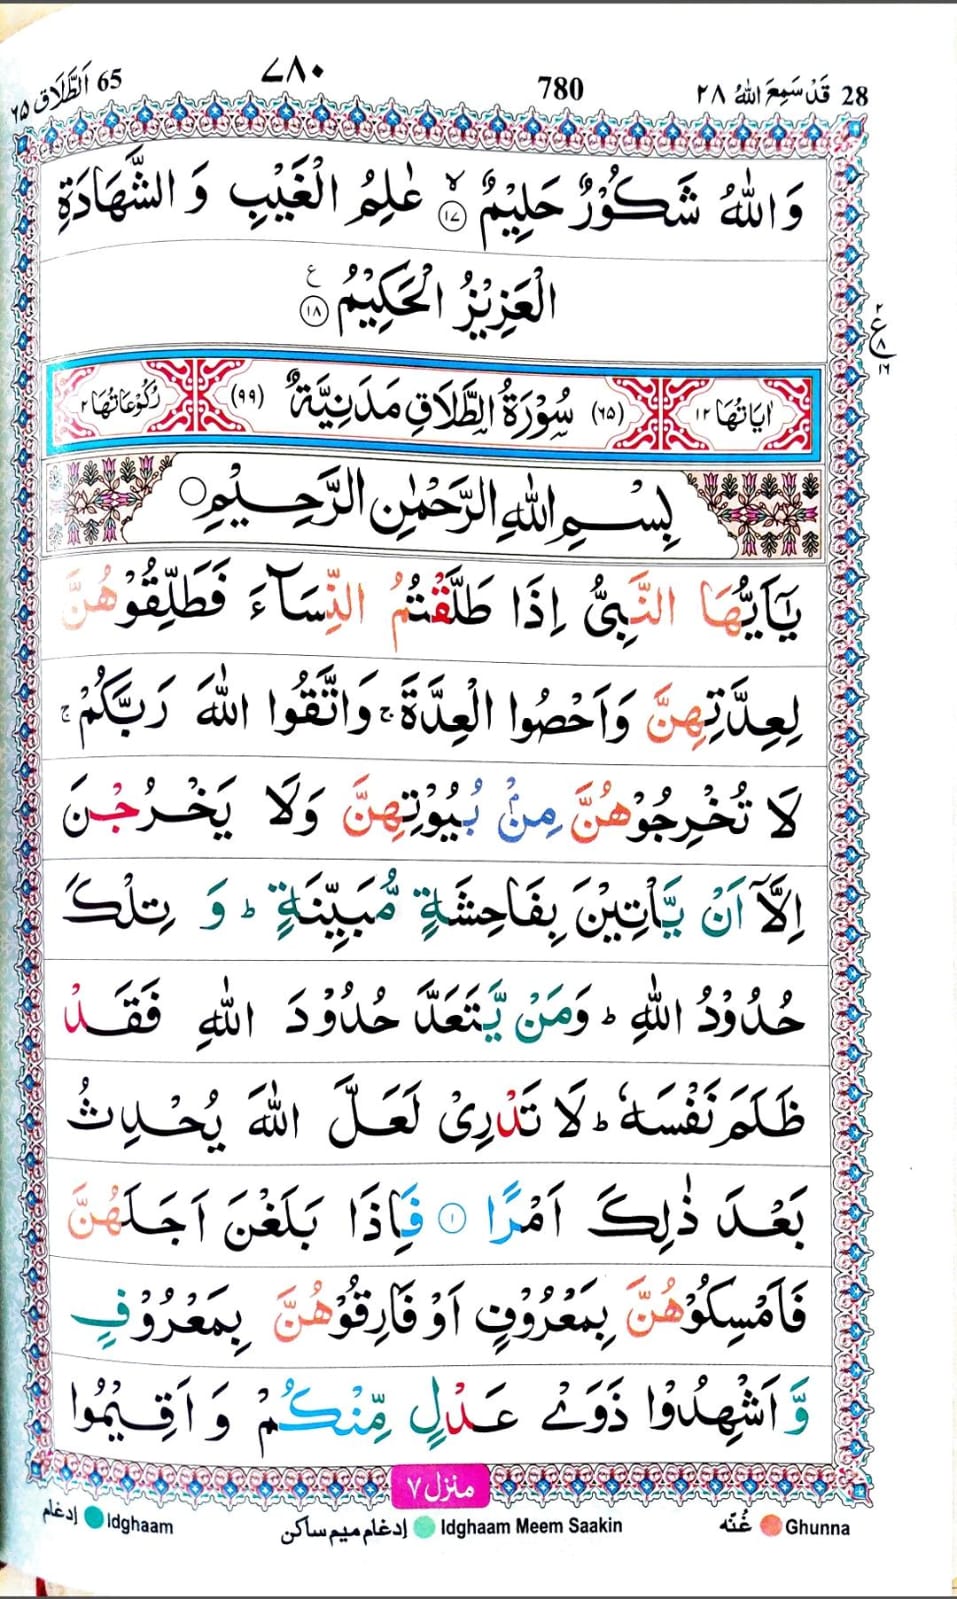 65 اَلطَّلَاق ٦٥
٧٨٠
780
28 قَدْ سَمِعَ اللهُ ٢٨
وَاللهُ شَكُوْرٌ حَلِيْمٌ ۙ ١٧ عٰلِمُ الْغَيْبِ وَ الشَّهَادَةِ
الْعَزِيْزُ الْحَكِيْمُ ١٨ ع
٢ ع ٨ ١٦
اٰيَاتُهَا ١٢ (٦٥) سُوْرَةُ الطَّلَاقِ مَدَنِيَّةٌ (٩٩) رُكُوْعَاتُهَا ٢
بِسْمِ اللهِ الرَّحْمٰنِ الرَّحِيْمِ ○
يٰۤاَيُّهَا النَّبِىُّ اِذَا طَلَّقْتُمُ النِّسَآءَ فَطَلِّقُوْهُنَّ
لِعِدَّتِهِنَّ وَاَحْصُوا الْعِدَّةَ ۚ وَاتَّقُوا اللهَ رَبَّكُمْ ۚ
لَا تُخْرِجُوْهُنَّ مِنْۢ بُيُوْتِهِنَّ وَلَا يَخْرُجْنَ
اِلَّاۤ اَنْ يَّاْتِيْنَ بِفَاحِشَةٍ مُّبَيِّنَةٍ ؕ وَ تِلْكَ
حُدُوْدُ اللهِ ؕ وَمَنْ يَّتَعَدَّ حُدُوْدَ اللهِ فَقَدْ
ظَلَمَ نَفْسَهٗ ؕ لَا تَدْرِىْ لَعَلَّ اللهَ يُحْدِثُ
بَعْدَ ذٰلِكَ اَمْرًا ١ فَاِذَا بَلَغْنَ اَجَلَهُنَّ
فَاَمْسِكُوْهُنَّ بِمَعْرُوْفٍ اَوْ فَارِقُوْهُنَّ بِمَعْرُوْفٍ
وَّ اَشْهِدُوْا ذَوَىْ عَدْلٍ مِّنْكُمْ وَ اَقِيْمُوا
منزل ٧
Ghunna غُنّه
Idghaam Meem Saakin إدغام ميم ساكن
Idghaam إدغام